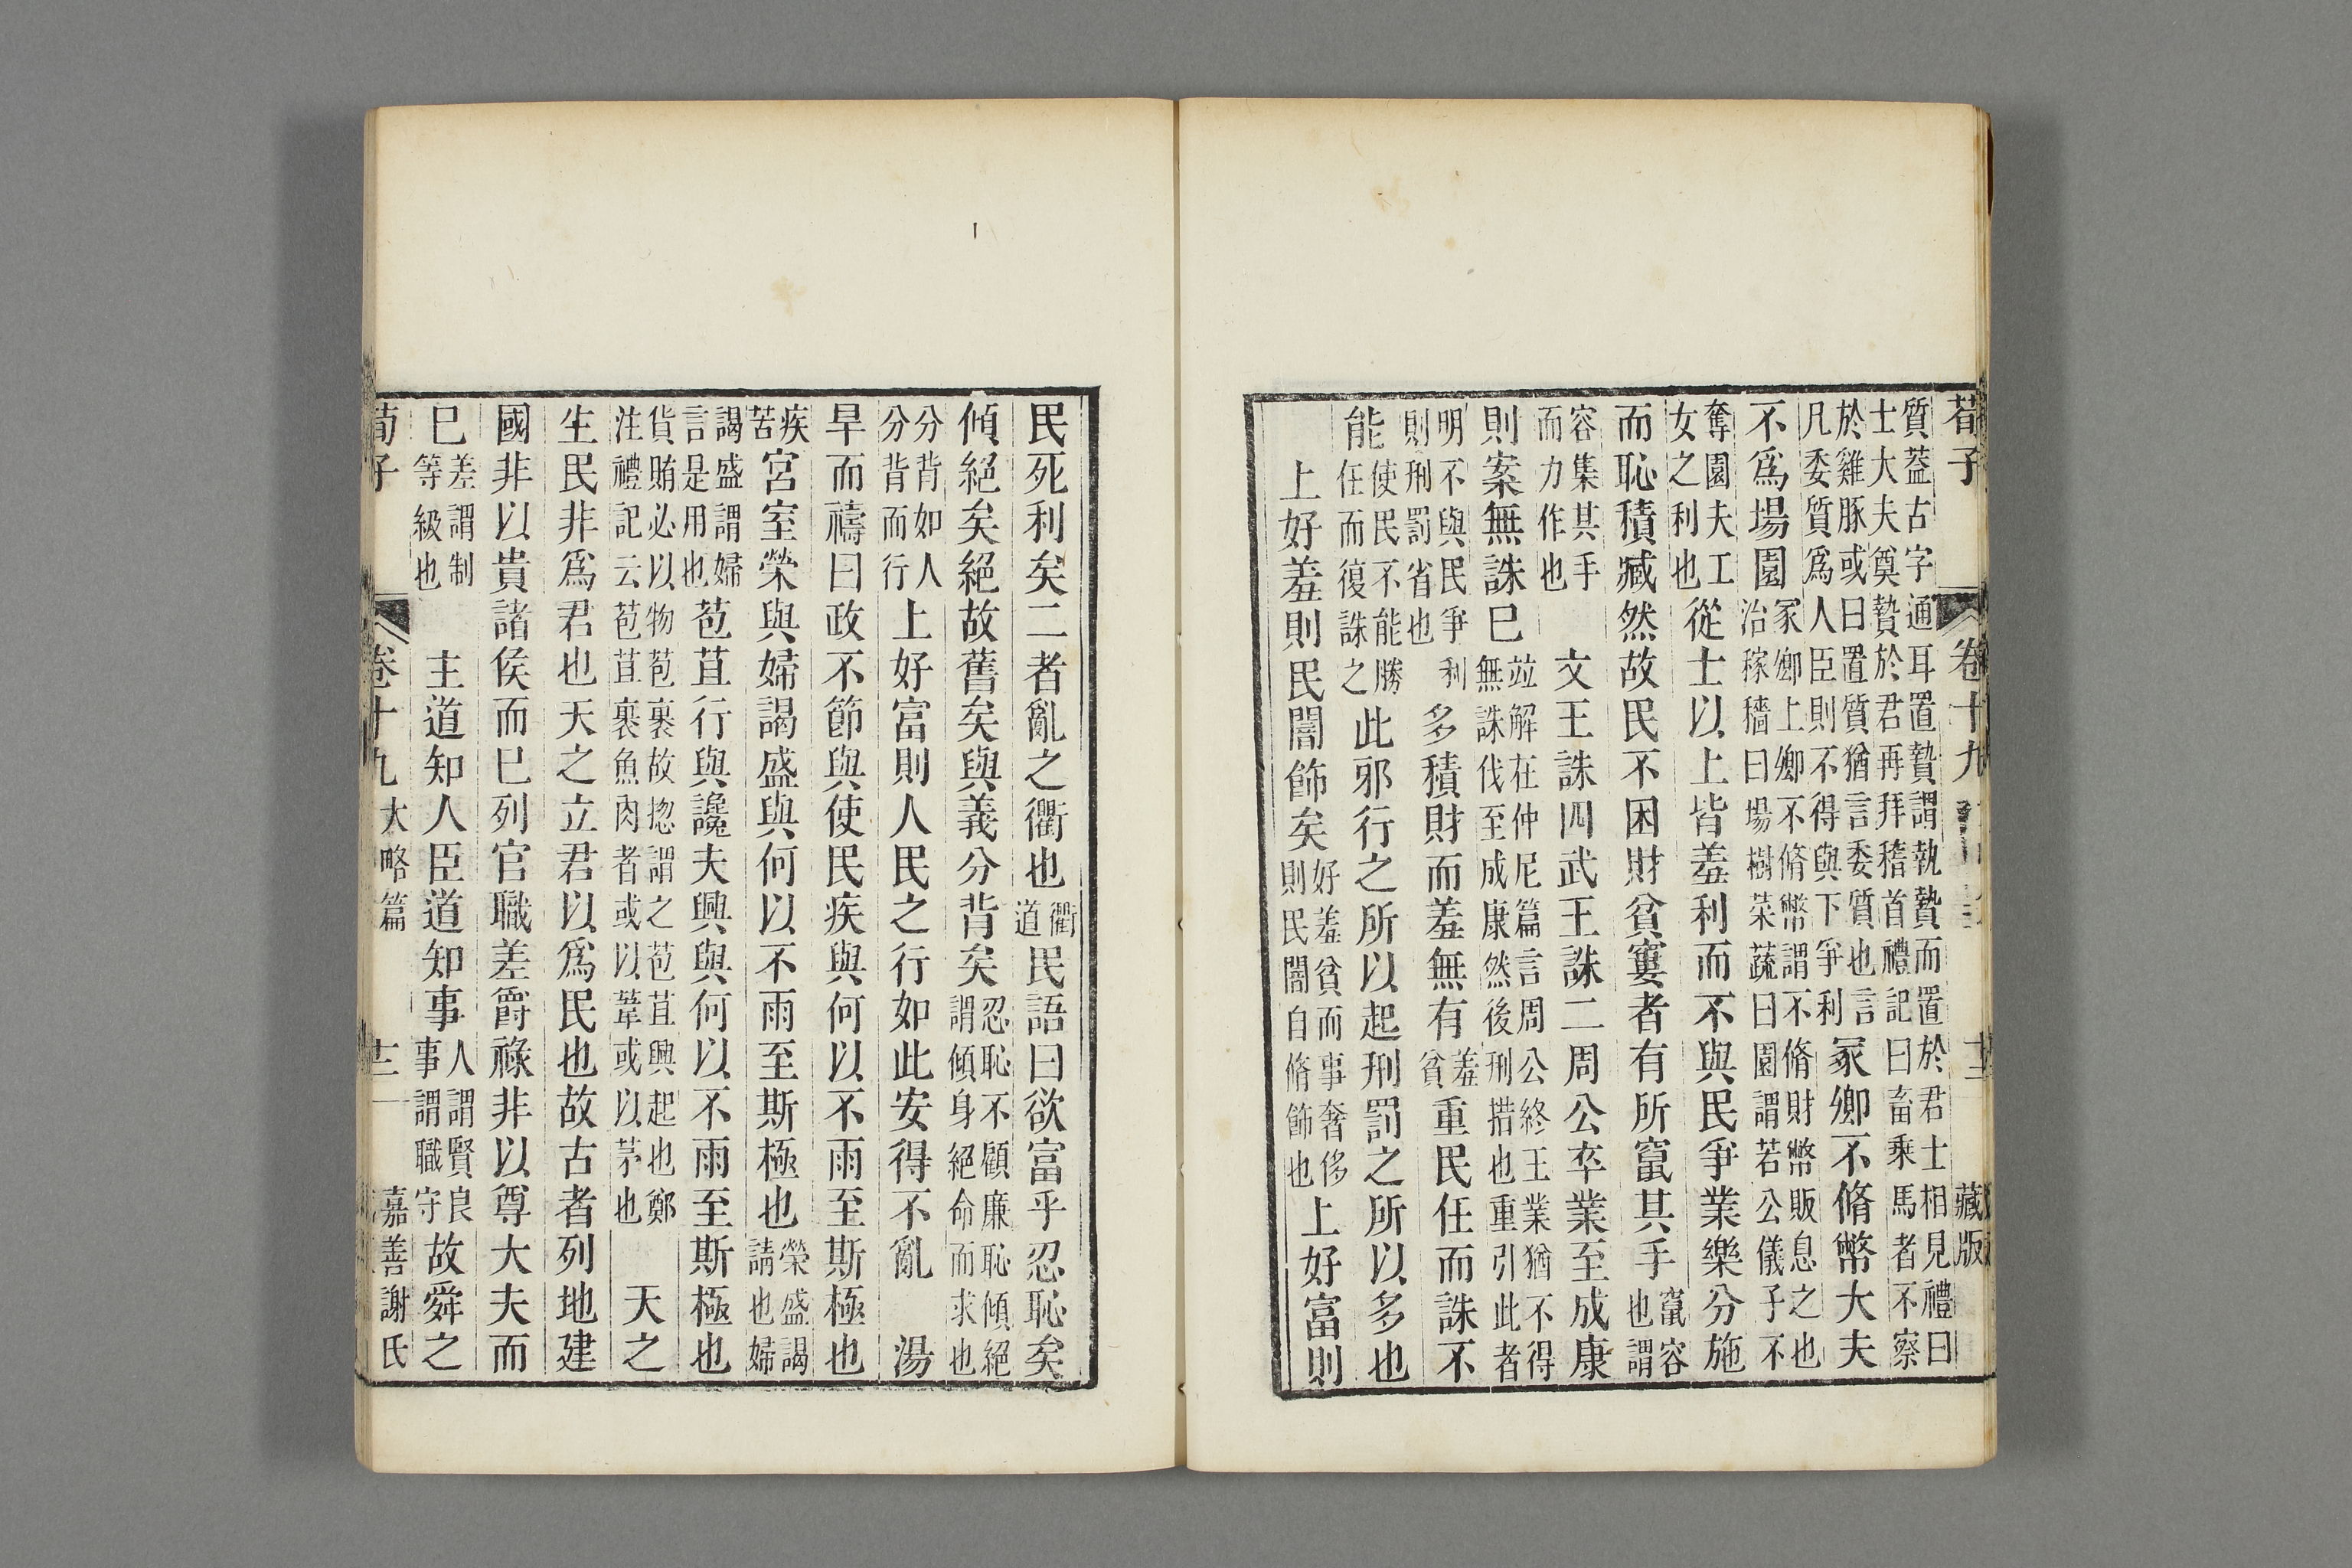 荀子 卷十九 十二 藏版
質葢古字通耳置贄謂執贄而置於君士相見禮曰
士大夫奠贄於君再拜稽首禮記曰畜乘馬者不察
於雞豚或曰置質猶言委質也言凡委質爲人臣則不得與下爭利冢卿不脩幣大夫
不爲場園冢卿上卿不脩幣謂不脩財幣販息之也治稼穡曰場樹菜蔬曰園謂若公儀子不
奪園夫工女之利也從士以上皆羞利而不與民爭業樂分施
而恥積臧然故民不困財貧窶者有所竄其手竄容也謂
容集其手而力作也 文王誅四武王誅二周公卒業至成康
則案無誅巳竝解在仲尼篇言周公終王業猶不得無誅伐至成康然後刑措也重引此者
明不與民爭利則刑罰省也 多積財而羞無有羞貧重民任而誅不
能使民不能勝任而復誅之此邪行之所以起刑罰之所以多也
上好羞則民闇飾矣好羞貧而事奢侈則民闇自脩飾也上好富則
民死利矣二者亂之衢也衢道民語曰欲富乎忍恥矣
傾絕矣絕故舊矣與義分背矣忍恥不顧廉恥傾絕謂傾身絕命而求也
分背如人分背而行上好富則人民之行如此安得不亂 湯
旱而禱曰政不節與使民疾與何以不雨至斯極也
疾苦宮室榮與婦謁盛與何以不雨至斯極也榮盛謁請也婦
謁盛謂婦言是用也苞苴行與讒夫興與何以不雨至斯極也
貨賄必以物苞裹故揔謂之苞苴興起也鄭注禮記云苞苴裹魚肉者或以葦或以茅也 天之
生民非爲君也天之立君以爲民也故古者列地建
國非以貴諸侯而巳列官職差爵祿非以尊大夫而
巳差謂制等級也 主道知人臣道知事人謂賢良事謂職守故舜之
荀子 卷十九 大略篇 十二 嘉善謝氏